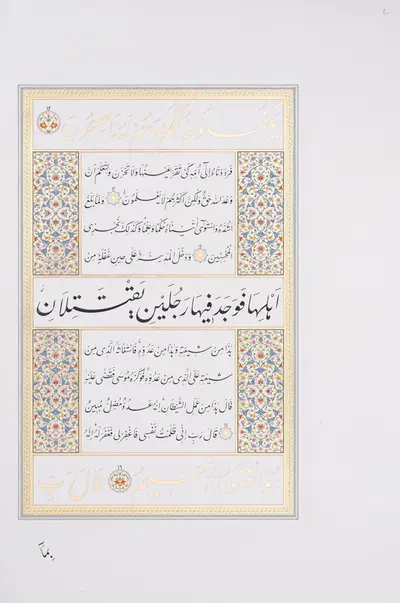 يكفلونه لكم وهم له ناصحون
فرددناه إلى أمه كي تقر عينها ولا تحزن ولتعلم أن
وعد الله حق ولكن أكثرهم لا يعلمون ولما بلغ
أشده واستوى آتيناه حكما وعلما وكذلك نجزي
المحسنين ودخل المدينة على حين غفلة من
أهلها فوجد فيها رجلين يقتتلان
هذا من شيعته وهذا من عدوه فاستغاثه الذي من
شيعته على الذي من عدوه فوكزه موسى فقضى عليه
قال هذا من عمل الشيطان إنه عدو مضل مبين
قال رب إني ظلمت نفسي فاغفر لي فغفر له إنه
هو الغفور الرحيم قال رب
بما